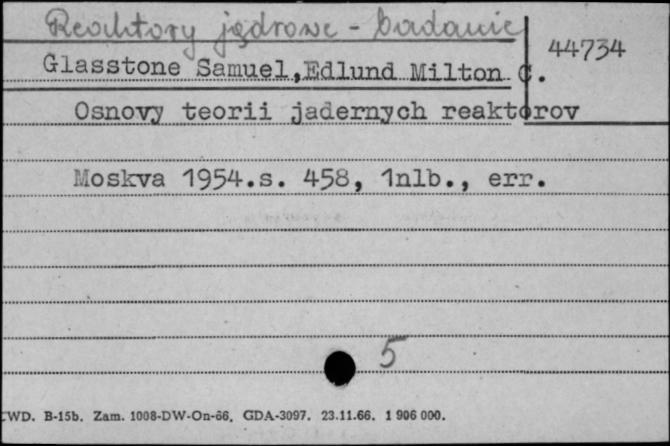 Reaktory jądrowe - badanie
44734
Glasstone Samuel,Edlund Milton C.
Osnovy teorii jadernych reaktorov
Moskva 1954.s. 458, 1nlb., err.
5
CWD. B-15b. Zam. 1008-DW-On-66. GDA-3097. 23.11.66. 1 906 000.